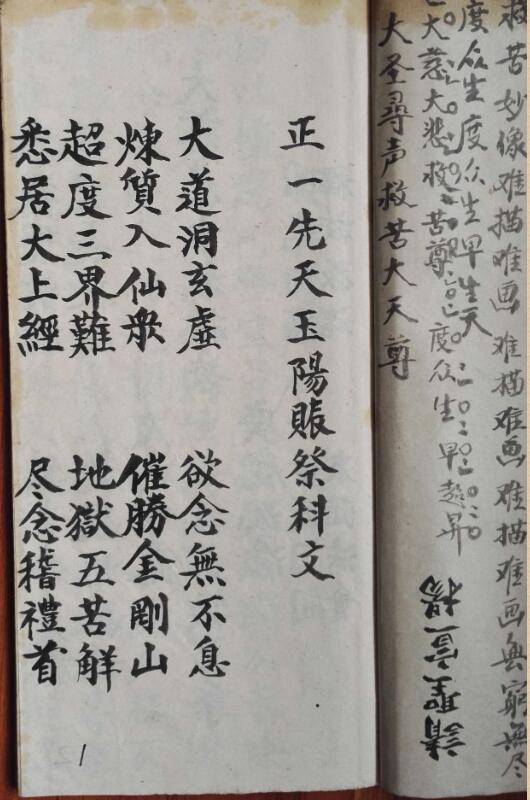 救苦妙像难描唯画难描难画难描难画無窮無尽
度众生度众生早生天
大慈大悲救苦尊
度众生早超昇
大圣尋声救苦大天尊
請聖
正一先天玉陽賬祭科文
大道洞玄虛 欲念無不息
煉質入仙衆 催勝金剛山
超度三界難 地獄五苦解
悉居大上經 尽念稽禮首
1